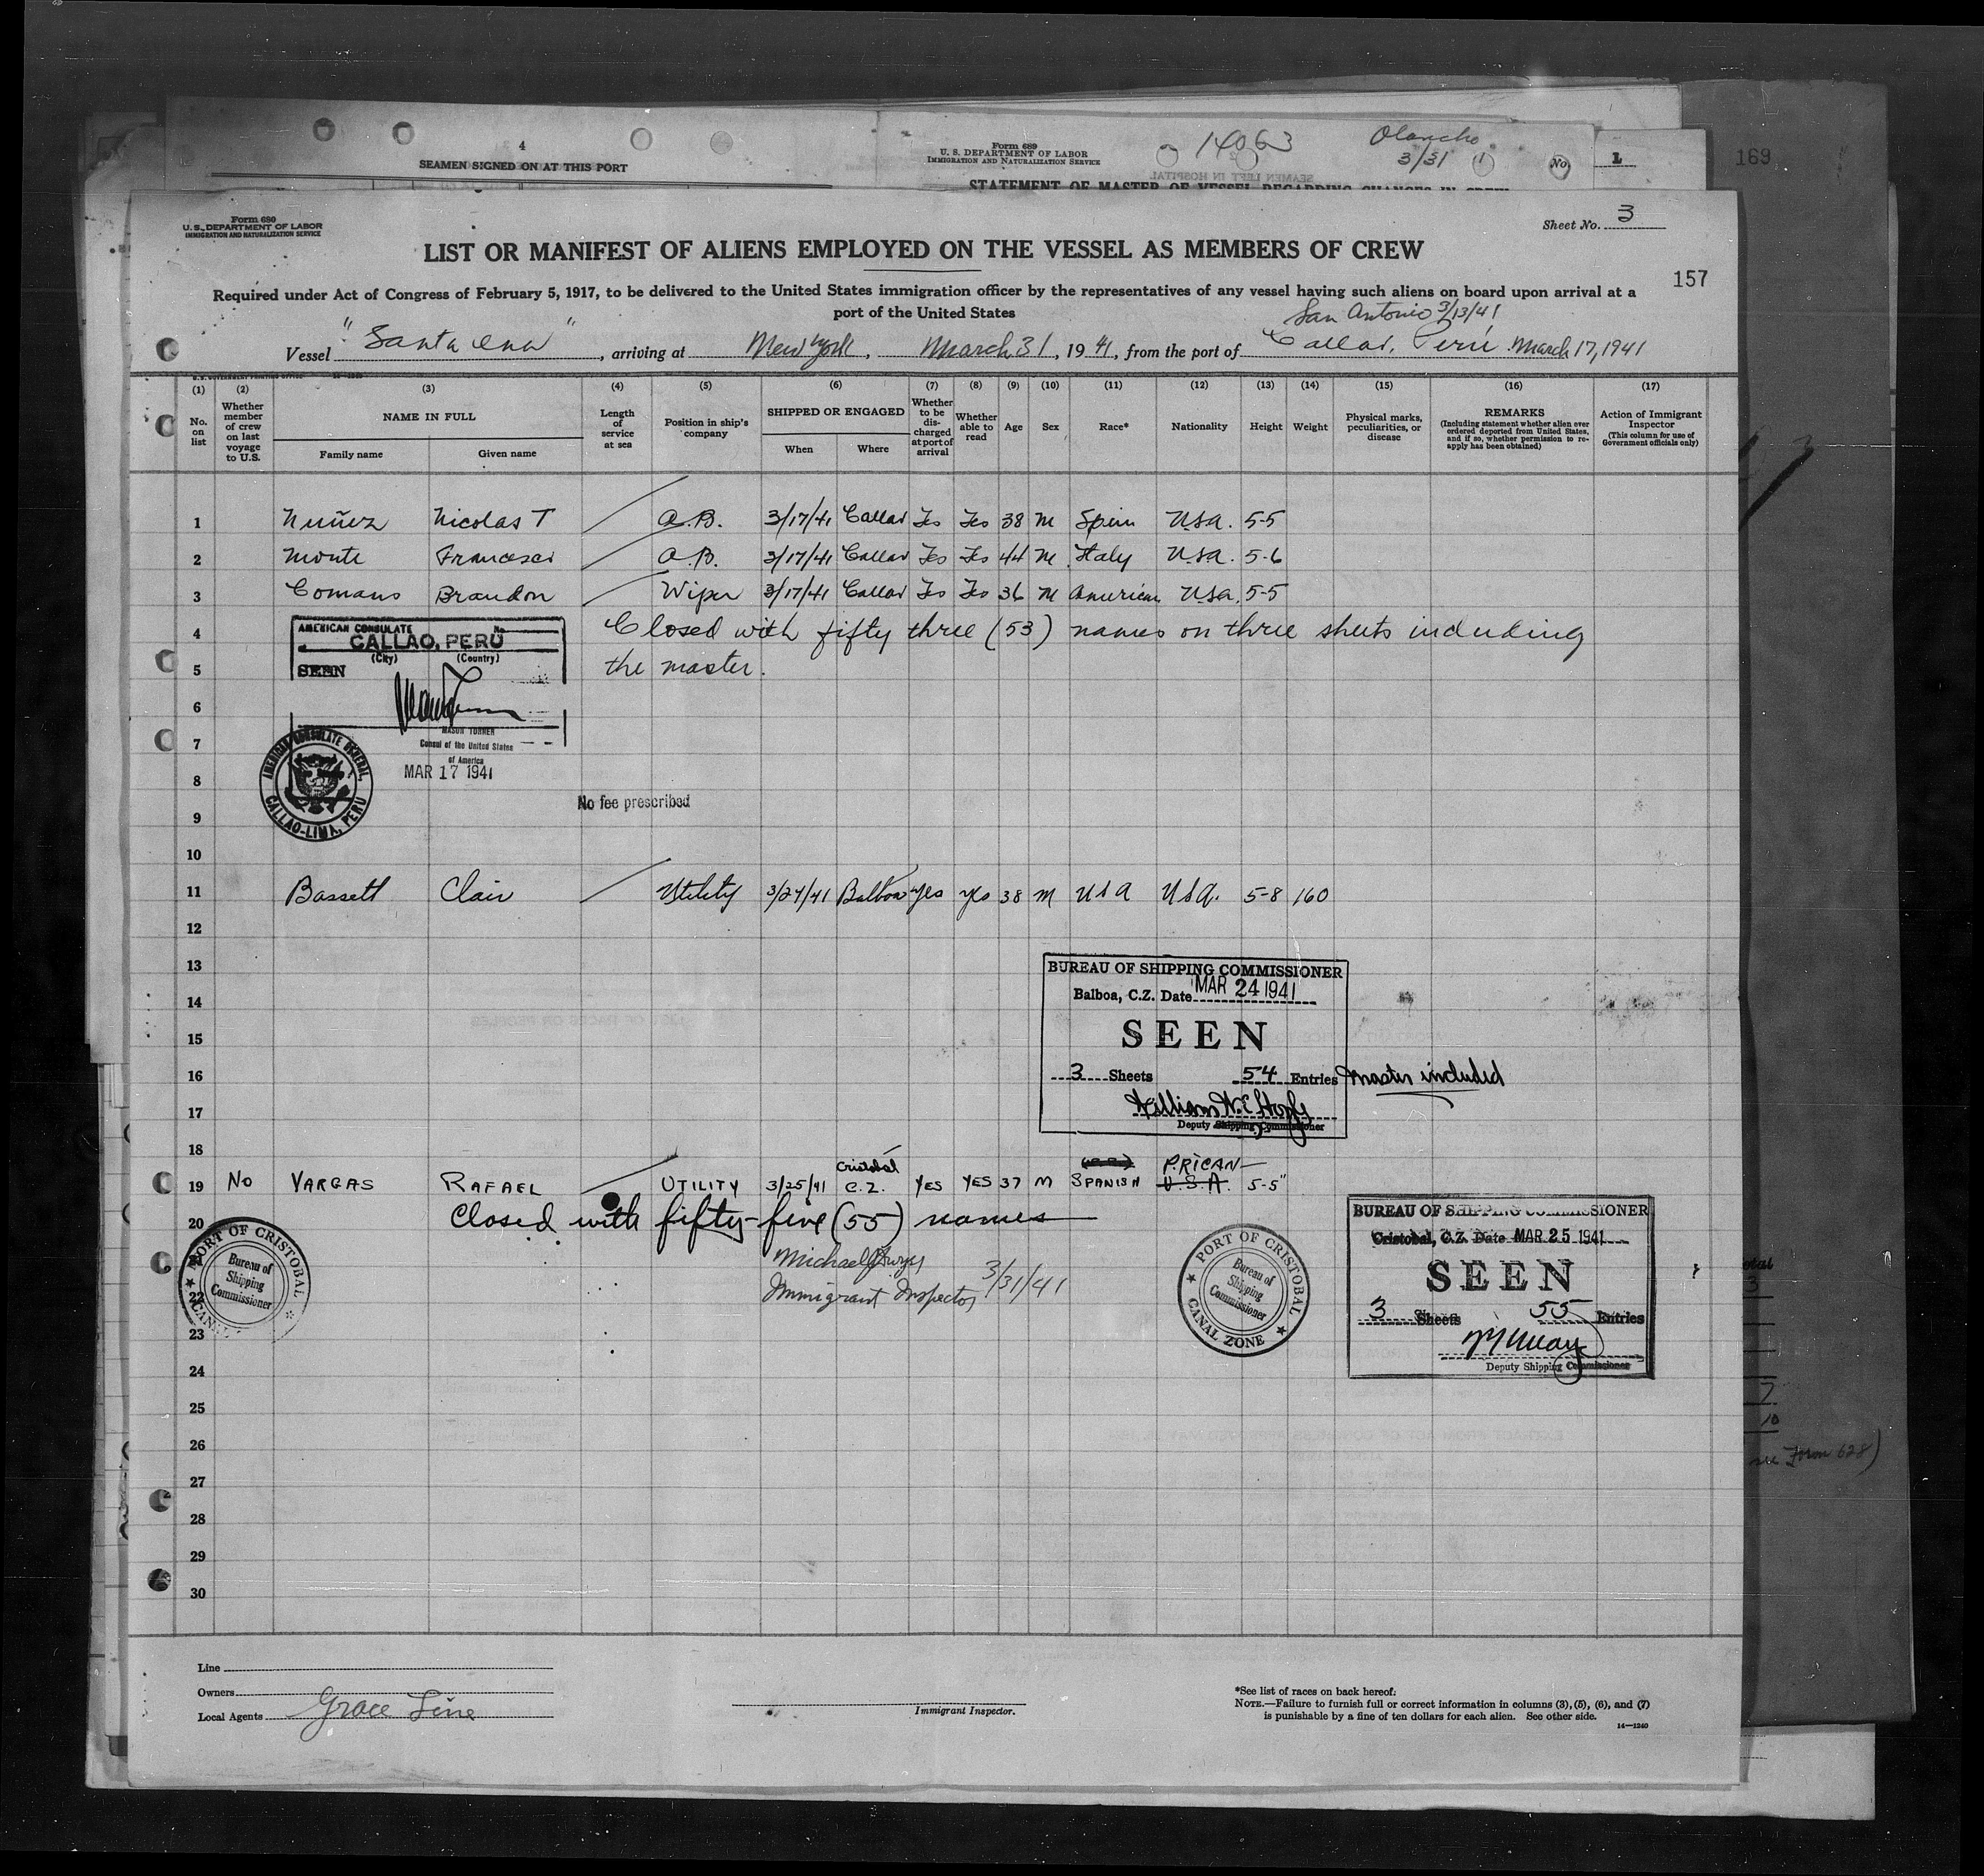 4
SEAMEN SIGNED ON AT THIS PORT
Form 689
U. S. DEPARTMENT OF LABOR
IMMIGRATION AND NATURALIZATION SERVICE
14063
Olancho
3/31
No.
1
169
SEAMEN LEFT IN HOSPITAL
STATEMENT OF MASTER OF VESSEL REGARDING CHANGES IN CREW
Form 680
U. S. DEPARTMENT OF LABOR
IMMIGRATION AND NATURALIZATION SERVICE
Sheet No. 3
LIST OR MANIFEST OF ALIENS EMPLOYED ON THE VESSEL AS MEMBERS OF CREW
157
Required under Act of Congress of February 5, 1917, to be delivered to the United States immigration officer by the representatives of any vessel having such aliens on board upon arrival at a
port of the United States
San Antonio 3/13/41
Vessel "Santa Ana", arriving at New York, March 31, 1941, from the port of Callao, Perú March 17, 1941
(1) (2) (3) (4) (5) (6) (7) (8) (9) (10) (11) (12) (13) (14) (15) (16) (17)
No. on list
Whether member of crew on last voyage to U.S.
NAME IN FULL
Family name Given name
Length of service at sea
Position in ship's company
SHIPPED OR ENGAGED
When Where
Whether to be discharged at port of arrival
Whether able to read
Age
Sex
Race*
Nationality
Height
Weight
Physical marks, peculiarities, or disease
REMARKS
(Including statement whether alien ever ordered deported from United States, and if so, whether permission to reapply has been obtained)
Action of Immigrant Inspector
(This column for use of Government officials only)
1 Nuñez Nicolas T A.B. 3/17/41 Callao Yes Yes 38 M Spain USA. 5-5
2 Monte Francesci A.B. 3/17/41 Callao Yes Yes 44 M Italy USA. 5-6
3 Comans Brandon Wiper 3/17/41 Callao Yes Yes 36 M American USA. 5-5
4 Closed with fifty three (53) names on three sheets including
5 the master.
AMERICAN CONSULATE No.
CALLAO, PERU
(City) (Country)
SEEN
6
7
Consul of the United States
of America
AMERICAN CONSULATE GENERAL,
CALLAO-LIMA, PERU
MAR 17 1941
8
No fee prescribed
9
10
11 Bassett Clair Utility 3/24/41 Balboa Yes Yes 38 M USA USA. 5-8 160
12
13
BUREAU OF SHIPPING COMMISSIONER
Balboa, C.Z. Date MAR 24 1941
14
SEEN
15
16
3 Sheets 54 Entries Master included
17
Deputy Shipping Commissioner
18
19 No VARGAS RAFAEL UTILITY 3/25/41 Cristobal C.Z. YES YES 37 M SPANISH P.RICAN U.S.A. 5-5"
20 Closed with fifty-five (55) names
21
Immigrant Inspector 3/31/41
22
PORT OF CRISTOBAL
Bureau of
Shipping
Commissioner
CANAL
PORT OF CRISTOBAL
Bureau of
Shipping
Commissioner
CANAL ZONE
BUREAU OF SHIPPING COMMISSIONER
Cristobal, C.Z. Date MAR 25 1941
SEEN
3 Sheets 55 Entries
Deputy Shipping Commissioner
23
24
25
26
27
28
29
30
see Form 628)
Line
Owners
Local Agents Grace Line
Immigrant Inspector.
*See list of races on back hereof.
NOTE.—Failure to furnish full or correct information in columns (3), (5), (6), and (7)
is punishable by a fine of ten dollars for each alien. See other side.
14—1240